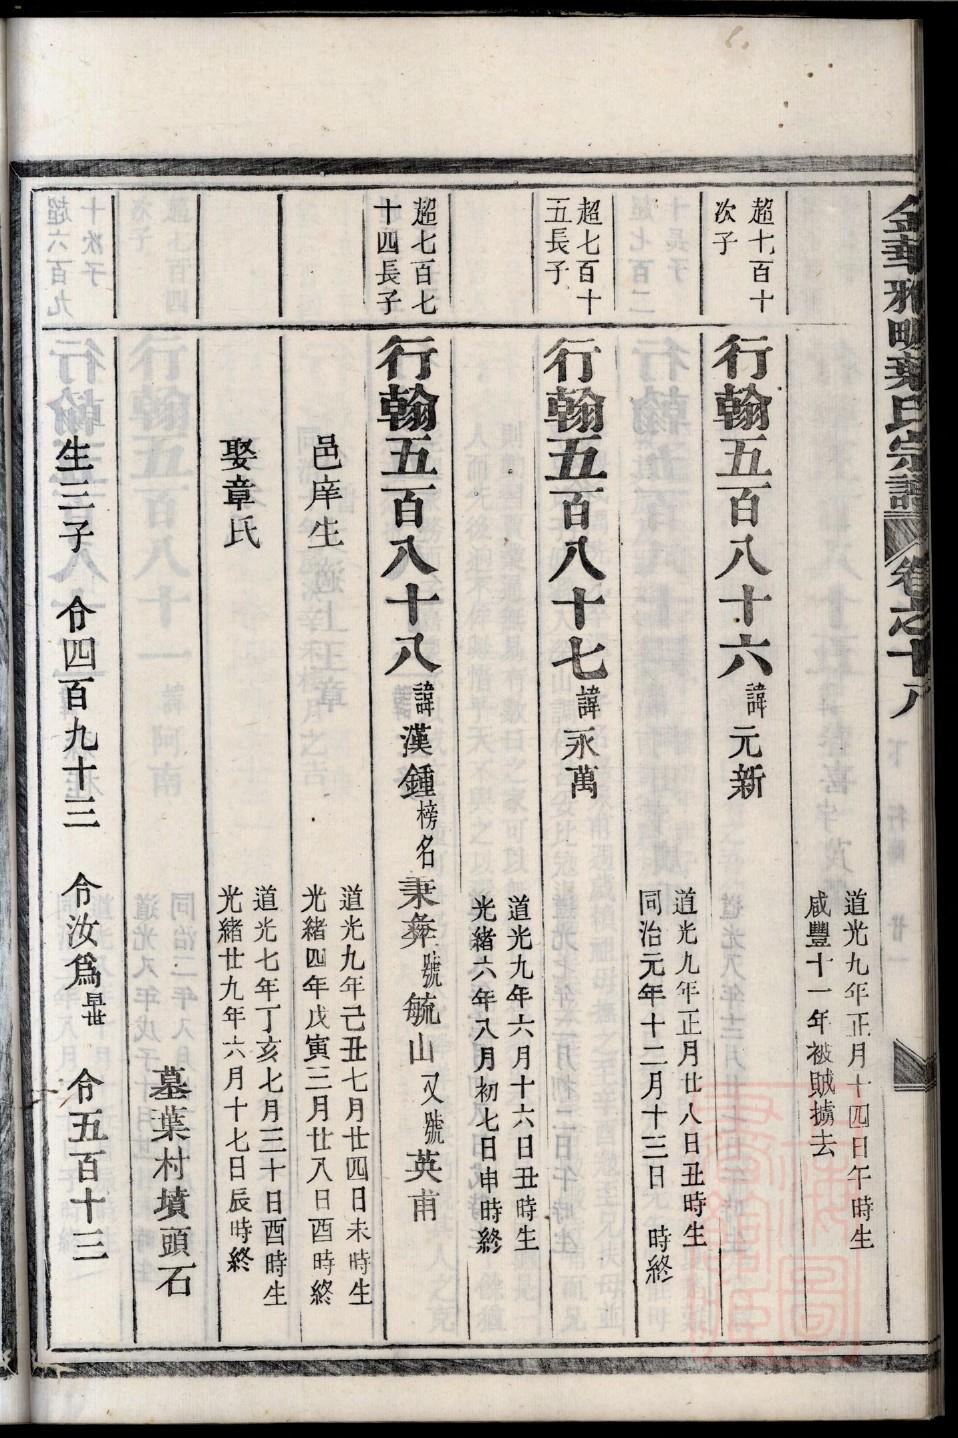 金華雅畈葉氏宗譜 卷之十八 下 行傳 廿一
道光九年正月十四日午時生
咸豐十一年被賊擄去
超七百十
次子
行翰五百八十六 諱元新
道光九年正月廿八日丑時生
同治元年十二月十三日 時終
超七百十
五長子
行翰五百八十七 諱永萬
道光九年六月十六日丑時生
光緒六年八月初七日申時終
超七百七
十四長子
行翰五百八十八 諱漢鍾 榜名秉彝 號毓山 又號英甫
邑庠生
道光九年己丑七月廿四日未時生
光緒四年戊寅三月廿八日酉時終
娶章氏
道光七年丁亥七月三十日酉時生
光緒廿九年六月十七日辰時終
墓葉村墳頭石
生三子 令四百九十三 令汝爲 令五百十三